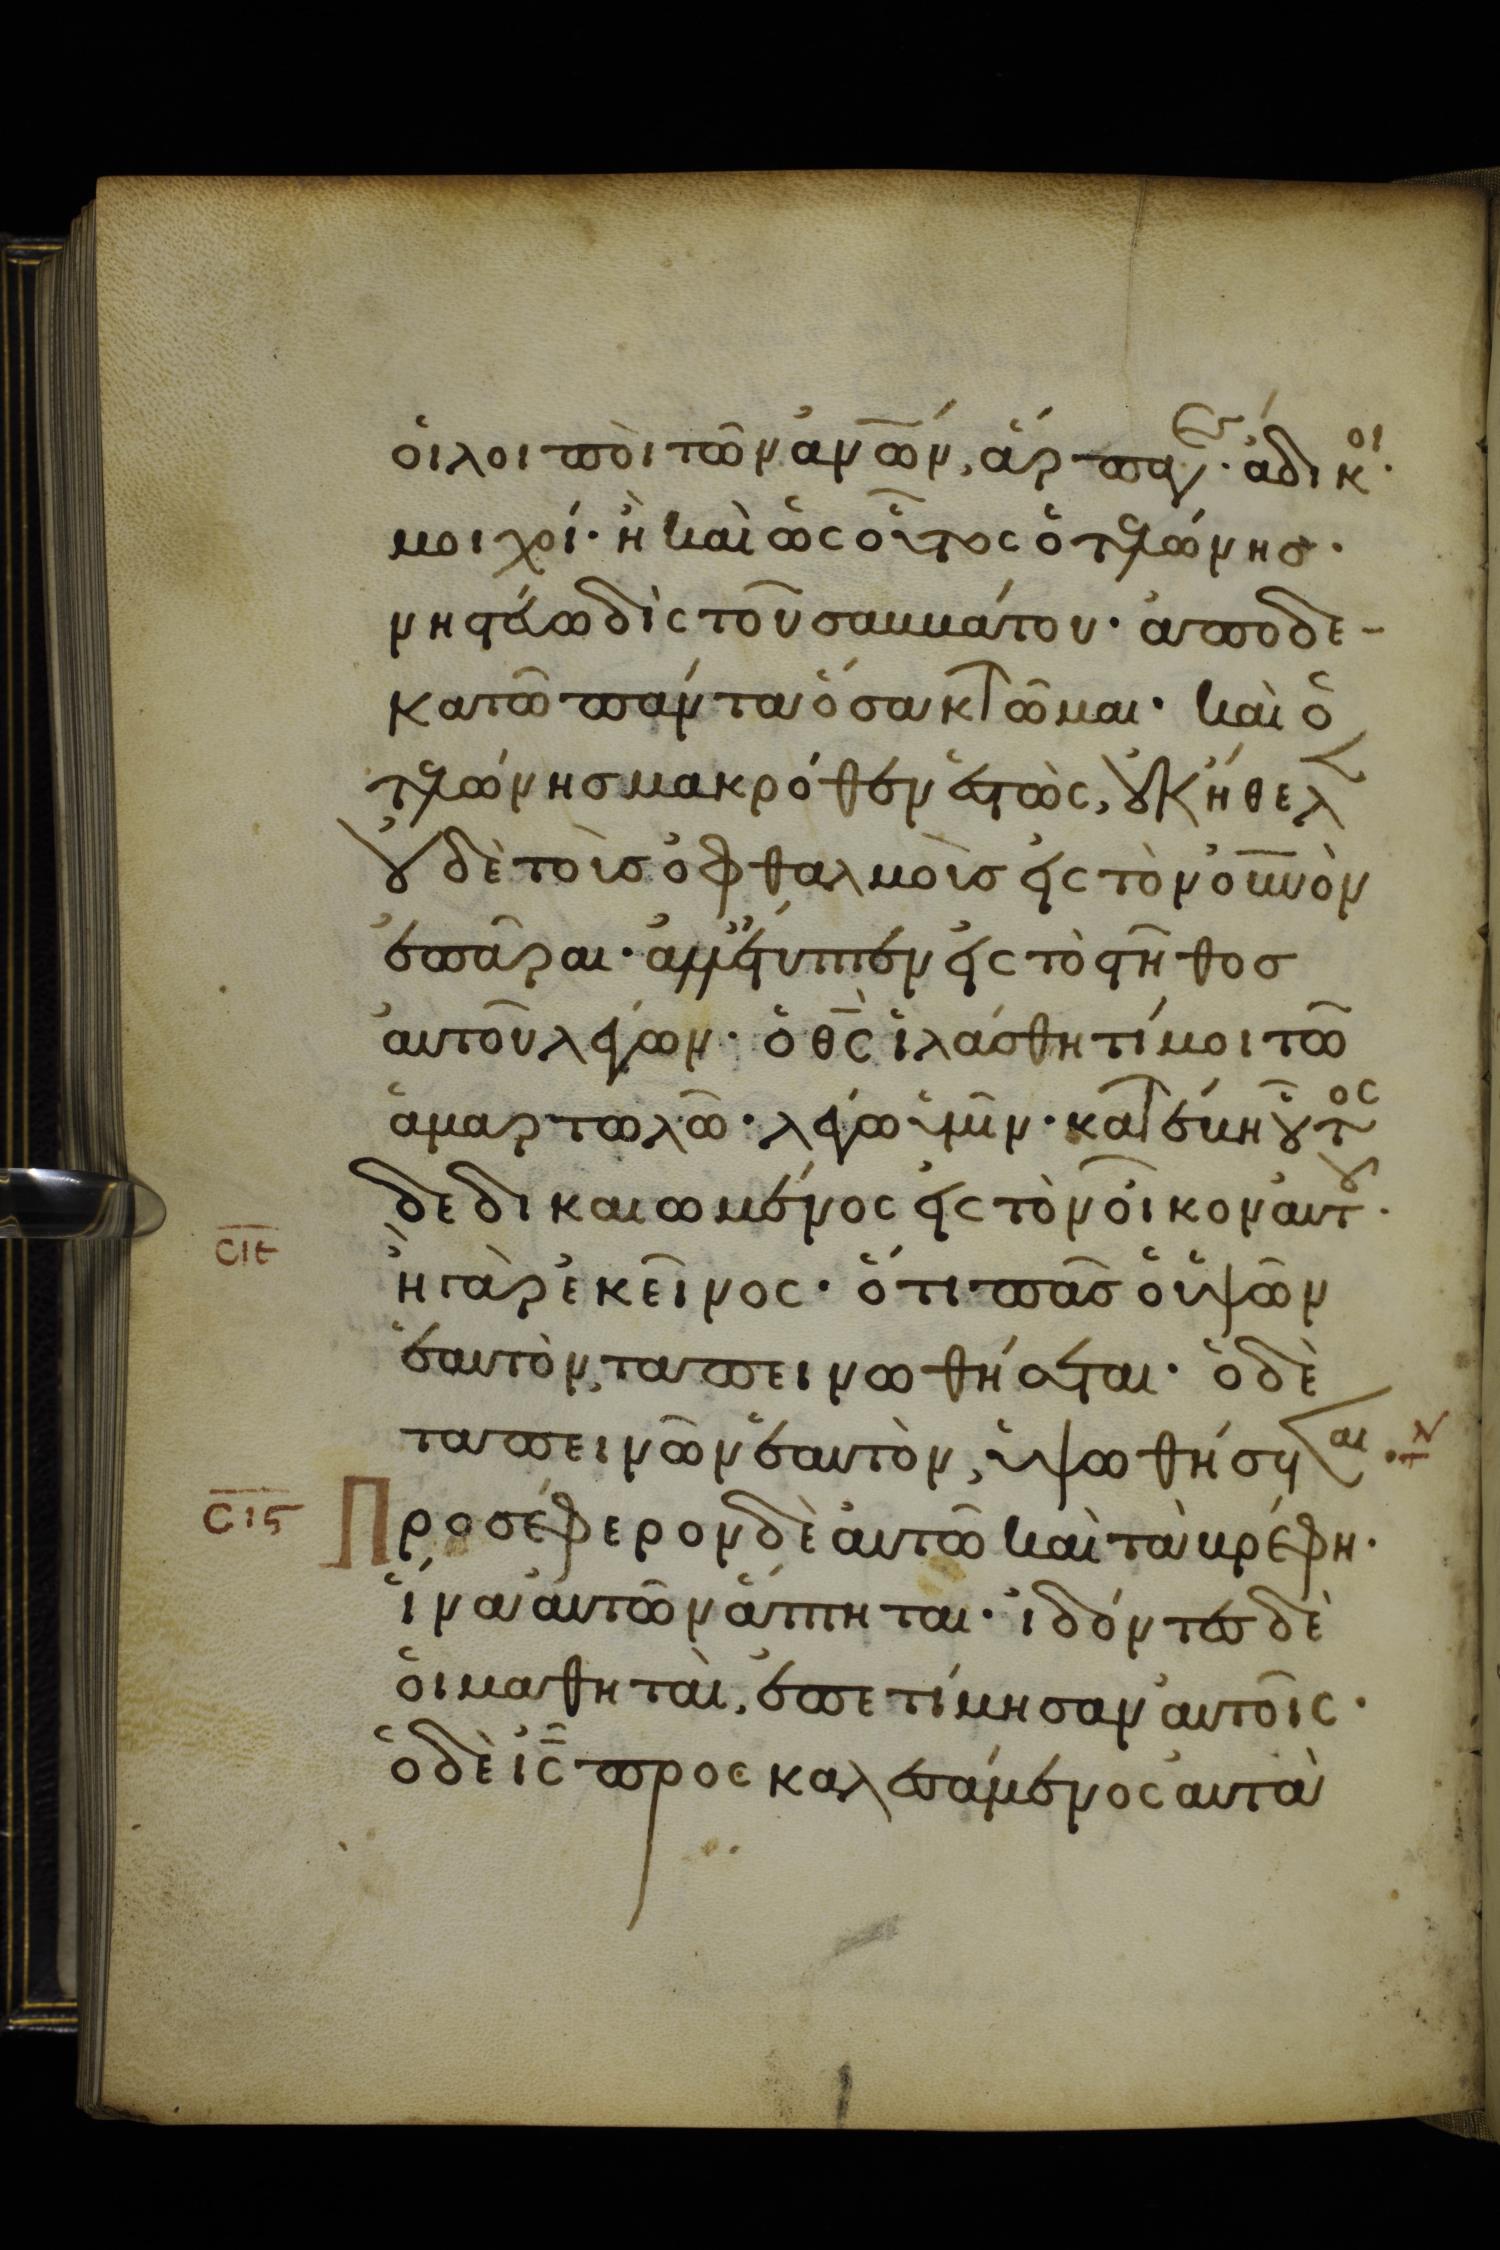 οἱ λοιποὶ τῶν ἀν͞ων, ἅρπαγες· ἄδικοι·
μοιχοί· ἢ καὶ ὡς οὗτος ὁ τελώνησ·
νηστεύω δὶς τοῦ σαββάτου· ἀποδε-
κατῶ πάντα ὅσα κτῶμαι· καὶ ὁ
τελώνησ μακρόθεν ἑστὼς, οὐκ ἤθελεν
οὐδὲ τοὺσ ὀφθαλμοὺσ εἰς τὸν οὐ͞νὸν
ἐπᾶραι· ἀλλ' ἔτυπτεν εἰς τὸ στῆθοσ
αὐτοῦ λέγων· ὁ θ͞ς ἱλάσθητί μοι τῶ
ἁμαρτωλῶ· λέγω ὑμῖν· κατέβη οὗτος
δεδικαιωμένος εἰς τὸν οἶκον αὐτοῦ·
σιε
ἢ γὰρ ἐκεῖνος· ὅτι πᾶσ ὁ ὑψῶν
ἑαυτὸν, ταπεινωθήσεται· ὁ δὲ
ταπεινῶν ἑαυτὸν, ὑψωθήσεται·
σιϛ Προσέφερον δὲ αὐτῶ καὶ τὰ βρέφη·
ἵνα αὐτῶν ἅπτηται· ἰδόντες δὲ
οἱ μαθηταὶ, ἐπετίμησαν αὐτοῖς·
ὁ δὲ ἰ͞ς προσκαλεσάμενος αὐτὰ